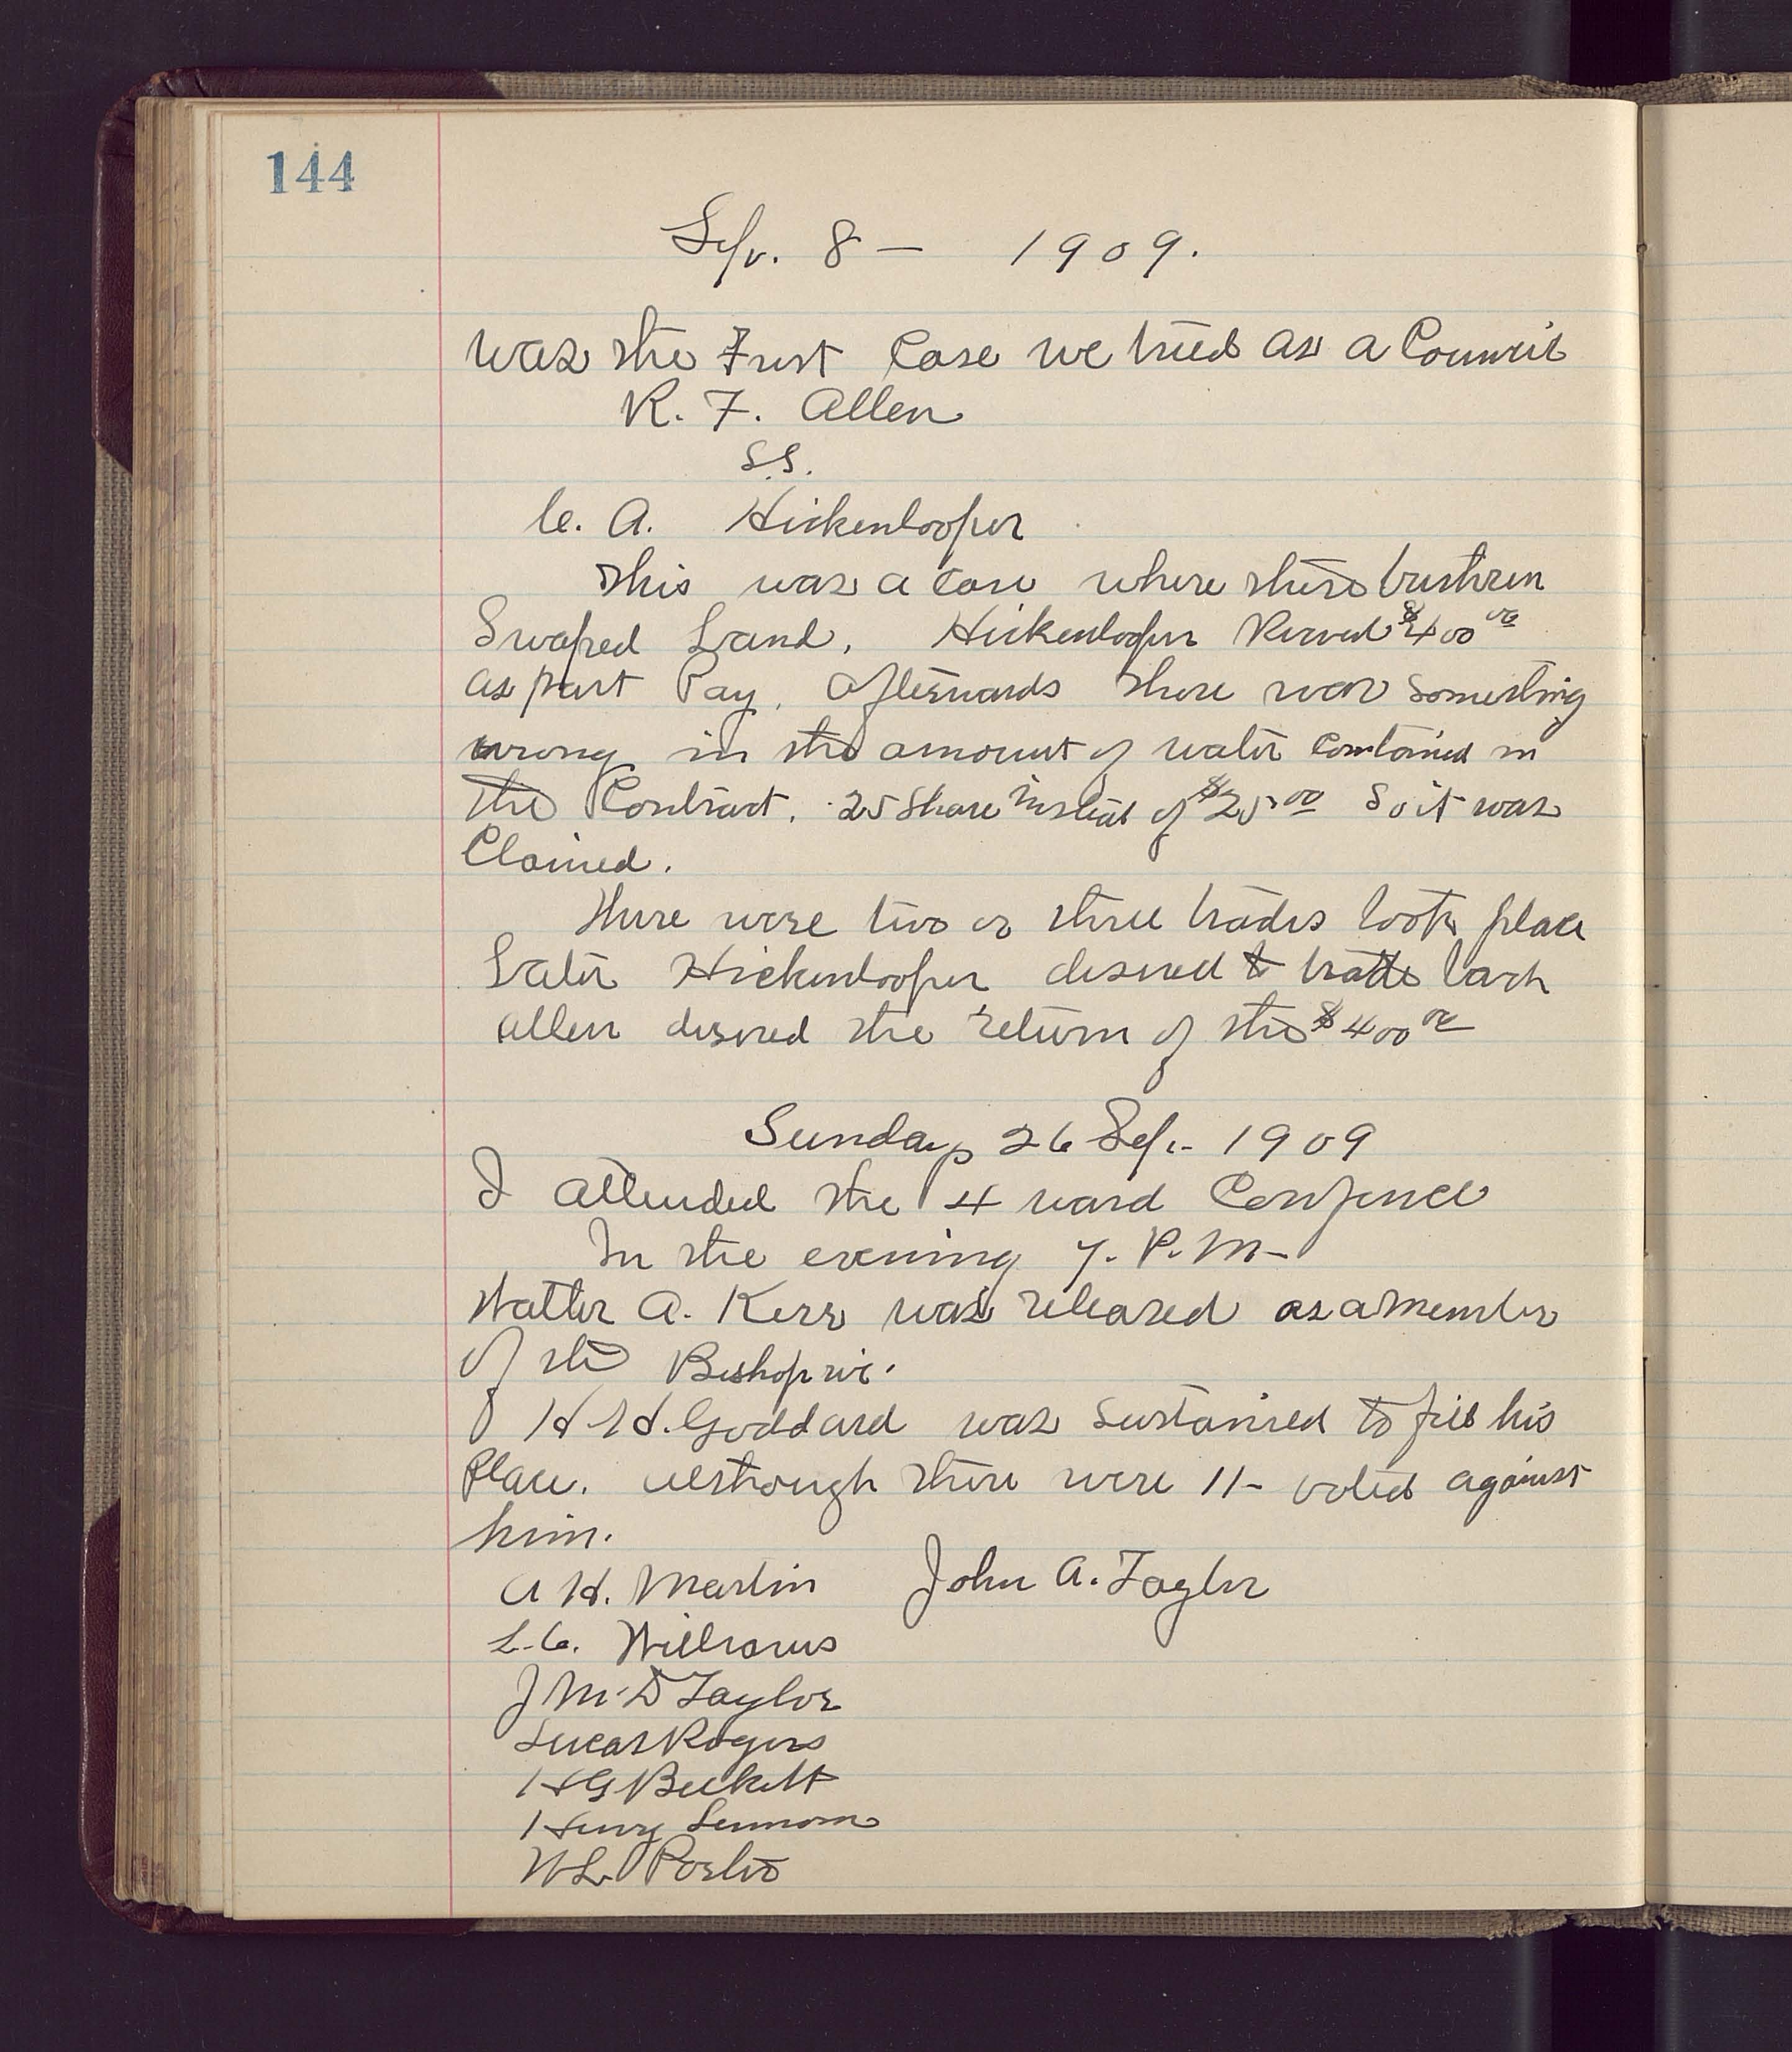 144
Sep. 8 - 1909.
was the First Case we tried as a Council
R. F. Allen
S.S.
C. A. Hickenlooper
This was a case where these brethren
Swaped Land. Hickenlooper Recived $400 00
as part Pay. Afterwards there was something
wrong in the amount of water contained in
the Contract. 25 Share instead of $25 00 So it was
Claimed.
There were two or three trades took place
Later Hickenlooper desired to trade back
Allen desired the return of the $400 00
Sunday 26 Sep. - 1909
I attended the 4 ward Confence
In the evening 7. P. M -
Walter A. Kerr was released as a member
of the Bishopric.
H H. Goddard was sustained to fill his
Place. Although there were 11 - voted against
him.
A H. Martin John A. Taylor
L. C. Williams
J M. D Taylor
Lucas Rogers
H G Beckett
Henry
W L Porter